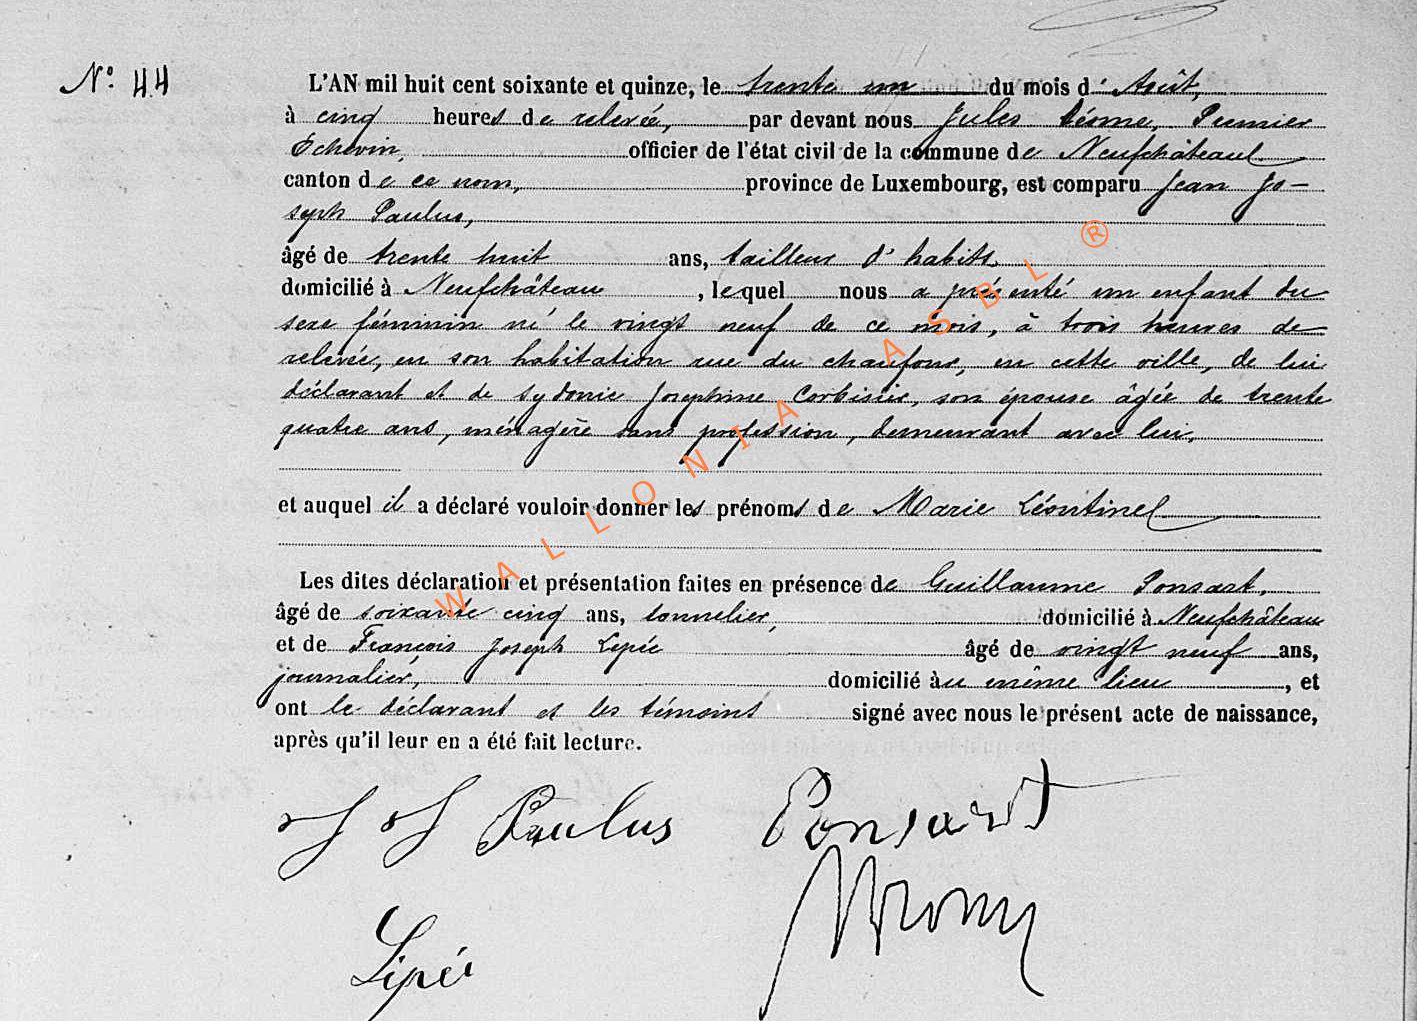 N° 44
L'AN mil huit cent soixante et quinze, le trente un du mois d'Août,
à cinq heures de relevée, par devant nous Jules Premier
Échevin, officier de l'état civil de la commune de Neufchâteau
canton de ce nom, province de Luxembourg, est comparu Jean Jo-
seph Paulus,
âgé de trente huit ans, tailleur d'habits
domicilié à Neufchâteau, lequel nous a présenté un enfant du
sexe féminin né le vingt neuf de ce mois, à trois heures de
relevée, en son habitation rue du chaufour, en cette ville, de lui
déclarant et de Sydonie Josephine Corbisier, son épouse âgée de trente
quatre ans, ménagère sans profession, demeurant avec lui,
et auquel il a déclaré vouloir donner les prénoms de Marie Léontine
Les dites déclaration et présentation faites en présence de Guillaume Ponsart,
âgé de soixante cinq ans, tonnelier, domicilié à Neufchâteau
et de François Joseph Lepée âgé de vingt neuf ans,
journalier, domicilié au même lieu, et
ont le déclarant et les témoins signé avec nous le présent acte de naissance,
après qu'il leur en a été fait lecture.
J J Paulus Ponsart
Lépée
WALLONIA ASBL ®